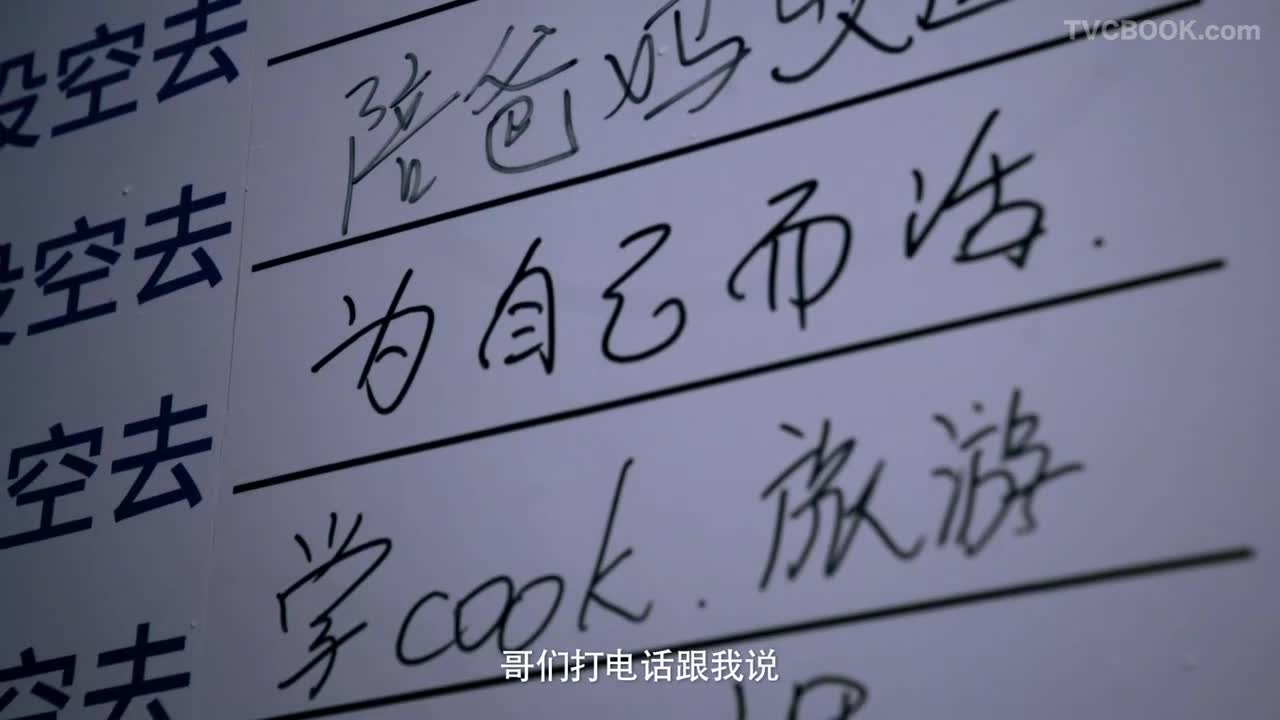 TVCBOOK.com
没空去 陪爸妈
没空去 为自己而活.
空去 学cook.旅游
空去
哥们打电话跟我说